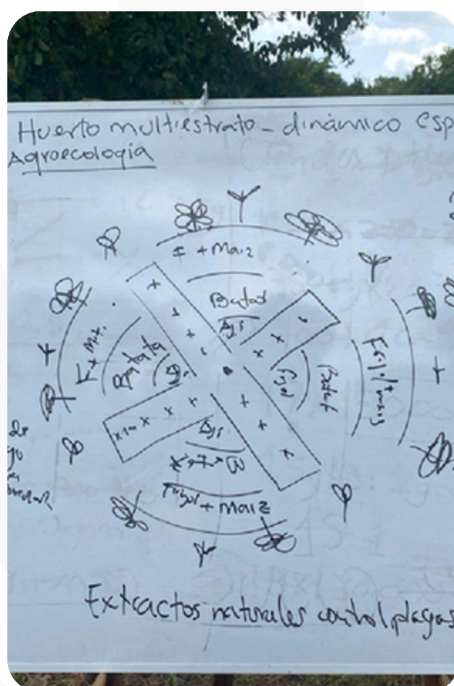 Huerto multiestrato - dinámico esp
Agroecología
F + Maiz
Batat
Aji
F + M
Batata
Aji
Frijol
Batat
Frijol/maiz
Aji
Batata
Frijol + Maiz
Extractos naturales control plagas